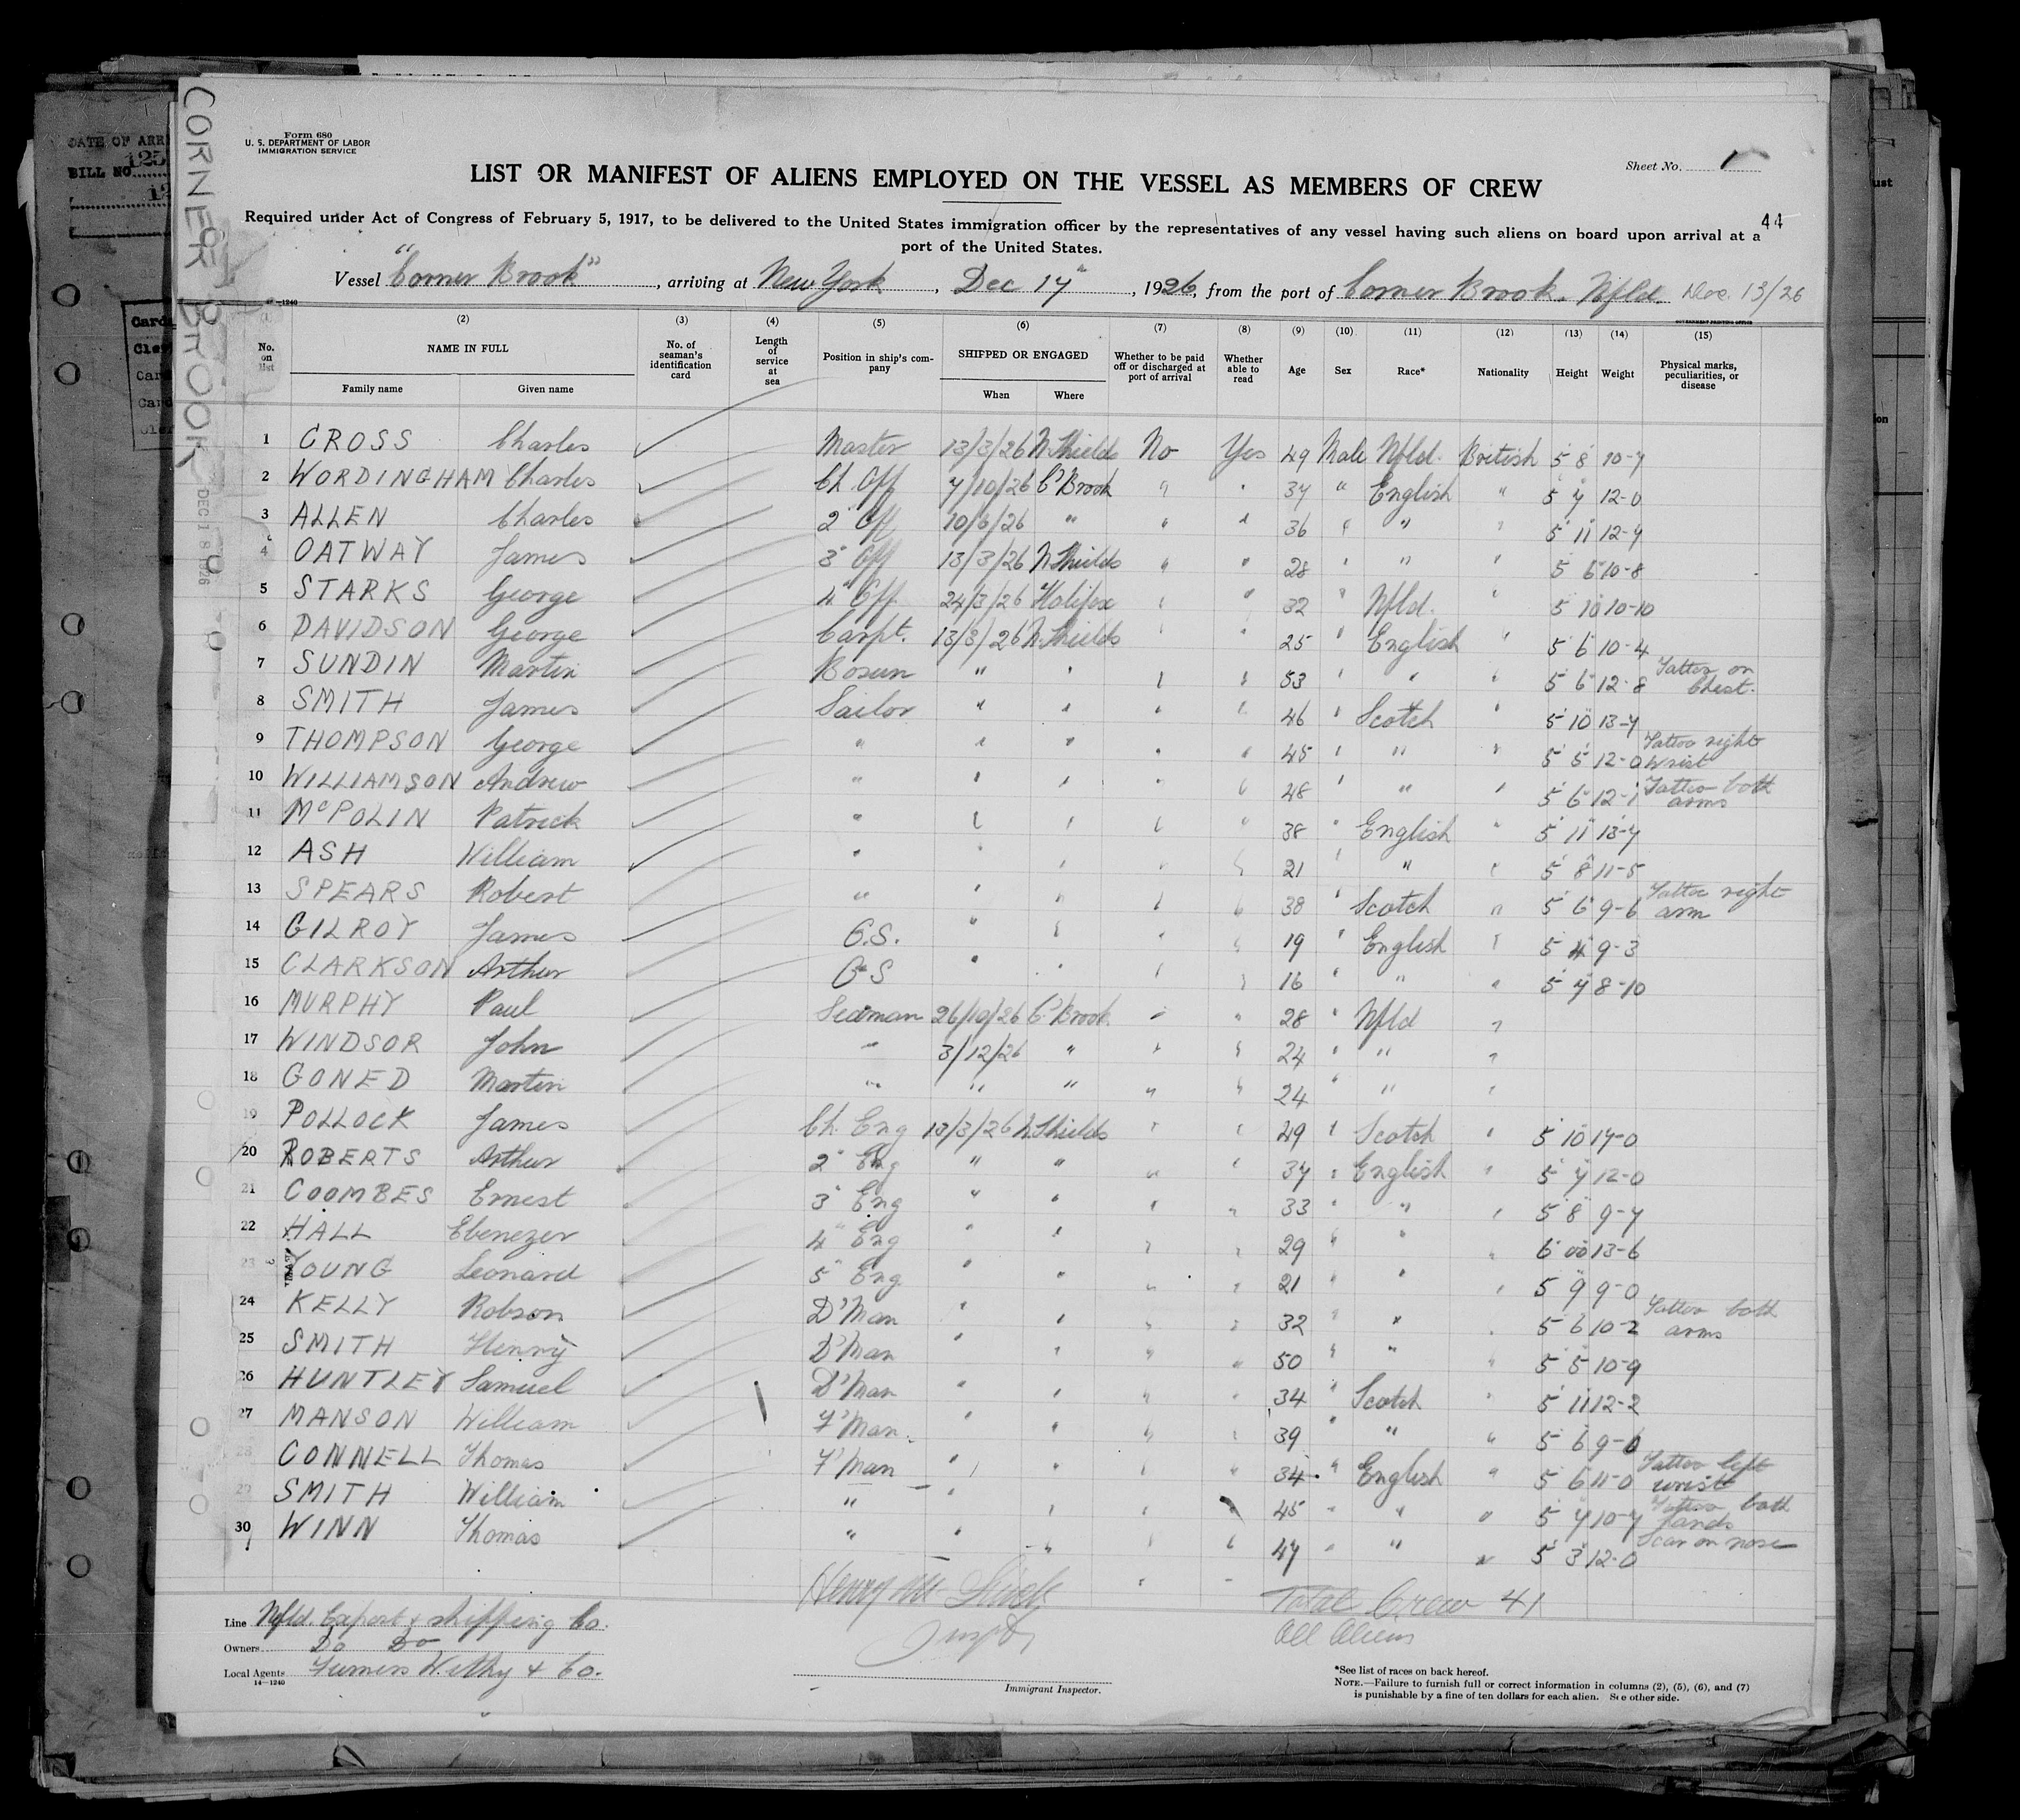 CORNER BROOK
DEC 18 1926
DATE OF ARR
BILL NO.
Form 680
U. S. DEPARTMENT OF LABOR
IMMIGRATION SERVICE
Sheet No. 1
LIST OR MANIFEST OF ALIENS EMPLOYED ON THE VESSEL AS MEMBERS OF CREW
44
Required under Act of Congress of February 5, 1917, to be delivered to the United States immigration officer by the representatives of any vessel having such aliens on board upon arrival at a
port of the United States.
Vessel "Corner Brook", arriving at New York, Dec 17", 1926, from the port of Corner Brook. Nfld. Dec. 13/26
(2) (3) (4) (5) (6) (7) (8) (9) (10) (11) (12) (13) (14) (15)
No. on list NAME IN FULL Family name Given name No. of seaman's identification card Length of service at sea Position in ship's company SHIPPED OR ENGAGED When Where Whether to be paid off or discharged at port of arrival Whether able to read Age Sex Race* Nationality Height Weight Physical marks, peculiarities, or disease
1 CROSS Charles Master 13/3/26 N. Shields No Yes 49 Male Nfld. British 5 8 10-7
2 WORDINGHAM Charles Ch. Off 7/10/26 C' Brook " " 37 " English " 5 7 12-0
3 ALLEN Charles 2" Off 10/6/26 " " " 36 " " " 5 11 12-7
4 OATWAY James 3" Off 13/3/26 N. Shields " " 28 " " " 5 6 10-8
5 STARKS George 4" Off. 24/3/26 Halifax " " 32 " Nfld. " 5 10 10-10
6 DAVIDSON George Carpt. 13/3/26 N. Shields " " 25 " English " 5 6 10-4
7 SUNDIN Martin Bosun " " " " 53 " " " 5 6 12-8 Tattoo on Chest.
8 SMITH James Sailor " " " " 46 " Scotch " 5 10 13-7
9 THOMPSON George " " " " " 45 " " " 5 5 12-0 Tattoo right wrist
10 WILLIAMSON Andrew " " " " " 48 " " " 5 6 12-1 Tattoo both arms
11 McPOLIN Patrick " " " " " 38 " English " 5 11 13-7
12 ASH William " " " " " 21 " " " 5 8 11-5
13 SPEARS Robert " " " " " 38 " Scotch " 5 6 9-6 Tattoo right arm
14 GILROY James O.S. " " " " 19 " English " 5 4 9-3
15 CLARKSON Arthur O.S " " " " 16 " " " 5 7 8-10
16 MURPHY Paul Seaman 26/10/26 C' Brook " " 28 " Nfld "
17 WINDSOR John " 3/12/26 " " " 24 " " "
18 GONED Martin " " " " " 24 " " "
19 POLLOCK James Ch. Eng 13/3/26 N. Shields " " 49 " Scotch " 5 10 17-0
20 ROBERTS Arthur 2" Eng " " " " 37 " English " 5 7 12-0
21 COOMBES Ernest 3" Eng " " " " 33 " " " 5 8 9-7
22 HALL Ebenezer 4" Eng " " " " 29 " " " 6 00 13-6
23 YOUNG Leonard 5" Eng " " " " 21 " " " 5 9 9-0
24 KELLY Robson D'Man " " " " 32 " " " 5 6 10-2 Tattoo both arms
25 SMITH Henry D'Man " " " " 50 " " " 5 5 10-9
26 HUNTLEY Samuel D'Man " " " " 34 " Scotch " 5 11 12-2
27 MANSON William F'Man. " " " " 39 " " " 5 6 9-0
28 CONNELL Thomas F'Man " " " " 34 " English " 5 6 11-0 Tattoo left wrist
29 SMITH William " " " " " 45 " " " 5 7 10-7 Tattoo both hands
30 WINN Thomas " " " " " 47 " " " 5 3 12-0 Scar on nose
Total Crew 41
All Aliens
Line Nfld. Export & Shipping Co.
Owners Do Do
Local Agents Furness Withy & Co.
14—1240
Immigrant Inspector.
*See list of races on back hereof.
NOTE.—Failure to furnish full or correct information in columns (2), (5), (6), and (7)
is punishable by a fine of ten dollars for each alien. See other side.